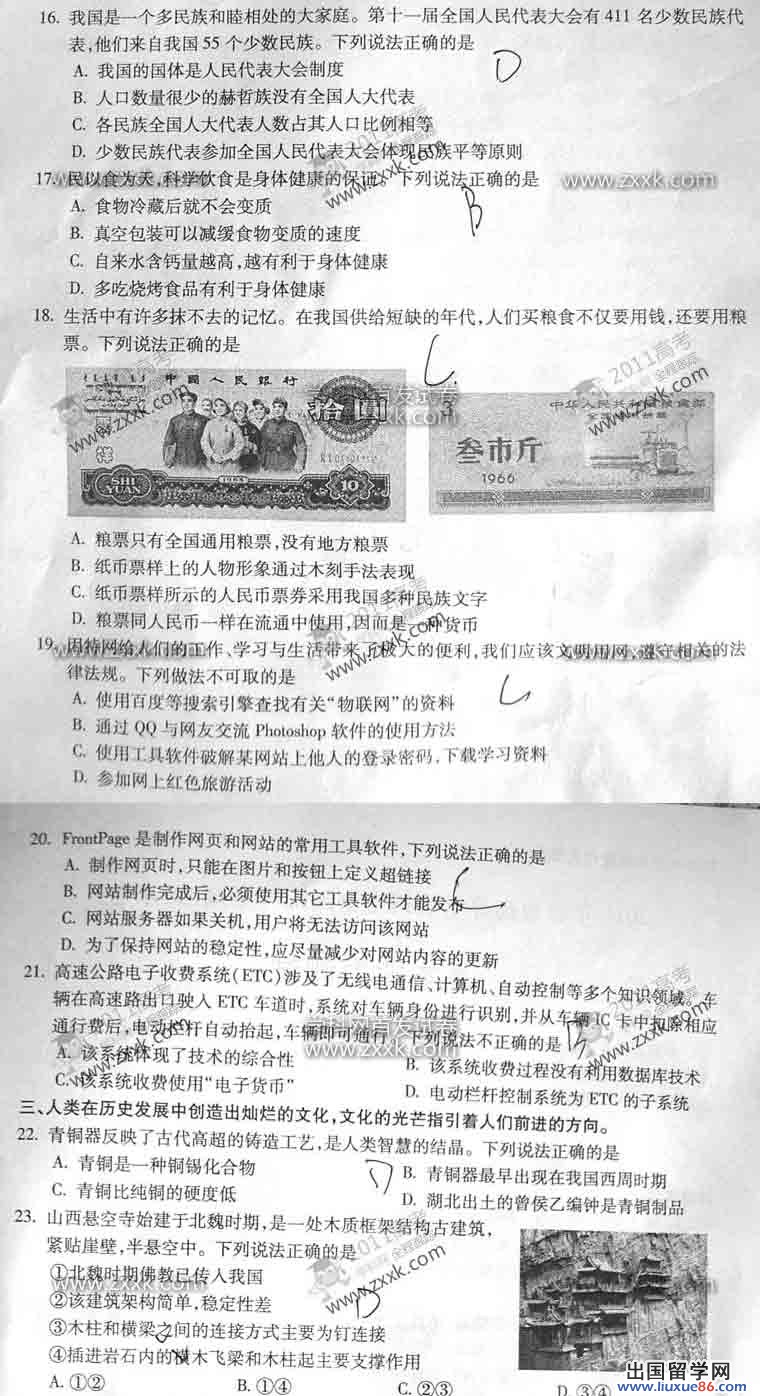 16. 我国是一个多民族和睦相处的大家庭。第十一届全国人民代表大会有 411 名少数民族代
表,他们来自我国 55 个少数民族。下列说法正确的是
A. 我国的国体是人民代表大会制度
D
B. 人口数量很少的赫哲族没有全国人大代表
C. 各民族全国人大代表人数占其人口比例相等
D. 少数民族代表参加全国人民代表大会体现民族平等原则
17. 民以食为天,科学饮食是身体健康的保证。下列说法正确的是
www.zxxk.com
A. 食物冷藏后就不会变质
B
B. 真空包装可以减缓食物变质的速度
C. 自来水含钙量越高,越有利于身体健康
D. 多吃烧烤食品有利于身体健康
18. 生活中有许多抹不去的记忆。在我国供给短缺的年代,人们买粮食不仅要用钱,还要用粮
票。下列说法正确的是
C
2011高考
www.zxxk.com
中國人民銀行
拾圓
SHI YUAN
1965
10
中华人民共和国粮食部
叁市斤
1966
A. 粮票只有全国通用粮票,没有地方粮票
B. 纸币票样上的人物形象通过木刻手法表现
C. 纸币票样所示的人民币票券采用我国多种民族文字
D. 粮票同人民币一样在流通中使用,因而是一种货币
19. 因特网给人们的工作、学习与生活带来了极大的便利,我们应该文明用网,遵守相关的法
律法规。下列做法不可取的是
C
A. 使用百度等搜索引擎查找有关“物联网”的资料
B. 通过 QQ 与网友交流 Photoshop 软件的使用方法
C. 使用工具软件破解某网站上他人的登录密码,下载学习资料
D. 参加网上红色旅游活动
20. FrontPage 是制作网页和网站的常用工具软件,下列说法正确的是
A. 制作网页时,只能在图片和按钮上定义超链接
C
B. 网站制作完成后,必须使用其它工具软件才能发布
C. 网站服务器如果关机,用户将无法访问该网站
D. 为了保持网站的稳定性,应尽量减少对网站内容的更新
21. 高速公路电子收费系统(ETC)涉及了无线电通信、计算机、自动控制等多个知识领域。车
辆在高速路出口驶入 ETC 车道时,系统对车辆身份进行识别,并从车辆 IC 卡中扣除相应
通行费后,电动栏杆自动抬起,车辆即可通行。下列说法不正确的是
B
A. 该系统体现了技术的综合性
B. 该系统收费过程没有利用数据库技术
C. 该系统收费使用“电子货币”
D. 电动栏杆控制系统为 ETC 的子系统
三、人类在历史发展中创造出灿烂的文化,文化的光芒指引着人们前进的方向。
22. 青铜器反映了古代高超的铸造工艺,是人类智慧的结晶。下列说法正确的是
A. 青铜是一种铜锡化合物
D
B. 青铜器最早出现在我国西周时期
C. 青铜比纯铜的硬度低
D. 湖北出土的曾侯乙编钟是青铜制品
23. 山西悬空寺始建于北魏时期,是一处木质框架结构古建筑,
紧贴崖壁,半悬空中。下列说法正确的是
①北魏时期佛教已传入我国
②该建筑架构简单,稳定性差
B
③木柱和横梁之间的连接方式主要为钉连接
④插进岩石内的横木飞梁和木柱起主要支撑作用
A. ①②
B. ①④
C. ②③
D. ③④
出国留学网
www.liuxue86.com